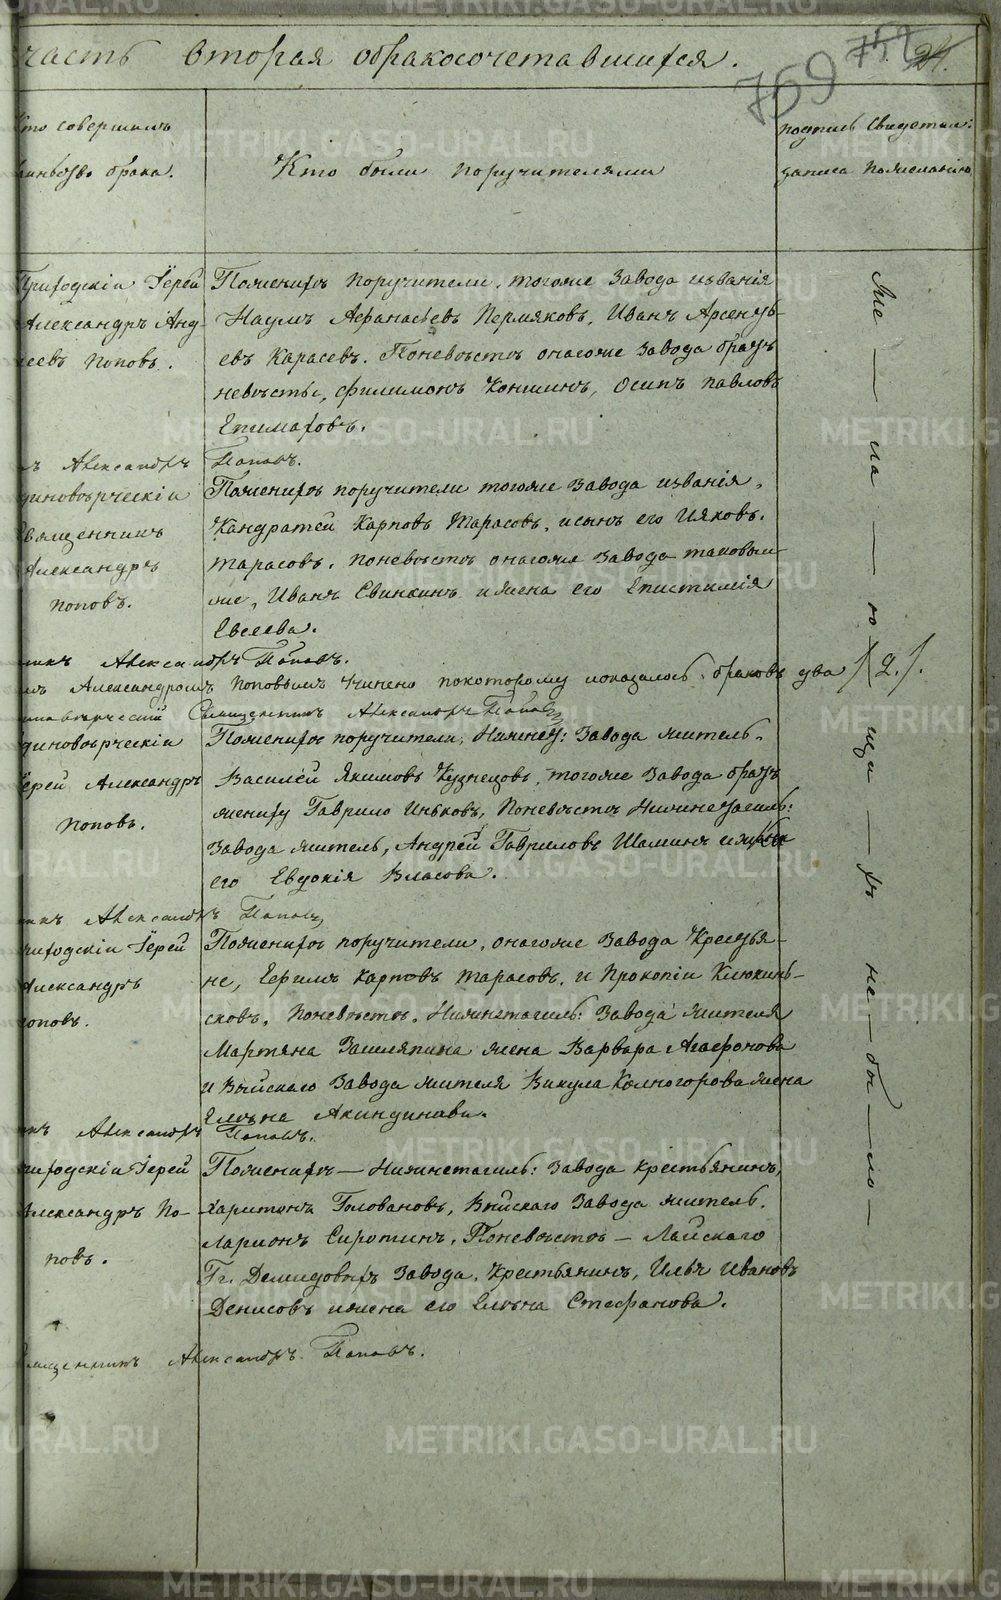 часть вторая обракосочетавшихся.
759 752 24.
кто совершилъ
таинъство брака.
Кто были поручителями
подпись Свидетел:
записа пожеланію
Приходскіи Іерей
Александръ Анд-
реевъ Поповъ.
Пожених поручители, тогоже Завода изванія
Наумъ Афанасьевъ Пермяковъ, Иванъ Арсенть-
евъ Карасевъ. Поневѣсте онагоже Завода братъ
невѣсты, Филимонъ Коншинъ, Осипъ Павловъ
Епимаховъ.
Александръ Поповъ.
диновѣрческіи
Священникъ
Александръ
поповъ.
Пожених поручители тогоже Завода изванія,
Кандратей Карповъ Тарасовъ, исынъ его Ияковъ
тарасовъ. поневѣсте онагоже Завода таковыи
же, Иванъ Свинкинъ ижена его Епистимія
Евсеева.
никъ Александръ Поповъ.
мъ Александромъ Поповымъ Чинено покоторому показалось браковъ два /2./.
Священникъ Александръ Поповъ
диновѣрческіи
Іерей Александръ
поповъ.
Пожених поручители, Нижнеу: Завода житель,
Василей Якимовъ Кузнецовъ, тогоже Завода братъ
жениху Гаврило Иньковъ, Поневѣсте
Завода житель, Андрей Гавриловъ Шаминъ
его Евдокія Власова.
никъ Александръ Поповъ
риходскіи Іерей
Александръ
поповъ.
Пожених поручители, онагоже Завода Крестья-
не, Ефимъ Карповъ Тарасовъ, и Прокопіи
сковъ, Поневѣсте, Нижнетагиль: Завода жителя
Мартяна жена Варвара Агафонова
и Выйскаго Завода жителя Викула Калногорова жена
Елена Акиндинава.
никъ Александръ Поповъ.
риходскіи Іерей
Александръ По-
повъ.
Пожених — Нижнетагиль: Завода крестьянинъ,
Харитонъ Головановъ, Выйскаго Завода житель,
Ларионъ Сиротинъ, Поневѣсте — Лайскаго
Гг. Демидовыхъ Завода, Крестьянинъ, Илья Ивановъ
Денисовъ ижена его Елена Стефанова.
Священникъ Александръ Поповъ.
Же — ла — ю — щи — хъ не — бы — ло —